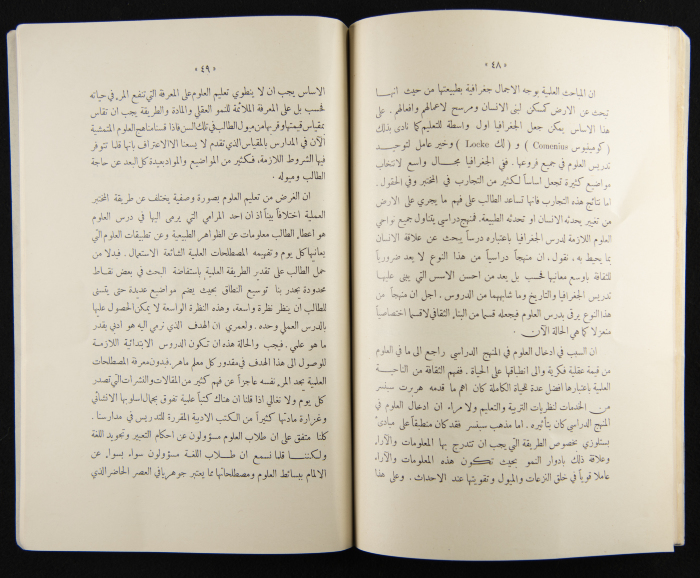 « ٤٨ »
ان المباحث العلمية بوجه الاجمال جغرافية بطبيعتها من حيث انهـا
تبحث عن الارض كمسكن لبني الانسان ومرسح لاعمالهم وافعالهم . على
هذا الاساس يمكن جعل الجغرافيا اول واسطة للتعليم كما نادى بذلك
( كومينيوس Comenius ) و ( لك Locke ) وخير عامل لتوحيد
تدريس العلوم في جميع فروعها . ففي الجغرافيا مجـال واسع لانتخاب
مواضيع كثيرة تجعل اساساً لكثير من التجارب في المختبر وفي الحقول .
اما نتائج هذه التجارب فانها تساعد الطالب على فهم ما يجري على الارض
من تغيير يحدثه الانسان او تحدثه الطبيعة. فمنهج دراسي يتناول جميع نواحي
العلوم اللازمة لدرس الجغرافيا باعتباره درساً يبحث عن علاقة الانسان
بما يحيط به . نقول ، ان منهجاً دراسياً من هذا النوع لا يعد ضرورياً
للثقافة باوسع معانيها فحسب بل يعد من احسن الاسس التي يبنى عليها
تدريس الجغرافيا والتاريخ وما شابههما من الدروس . اجل ان منهجاً من
هذا النوع يرقى بدرس العلوم فيجعله قسما من البناء الثقافي لا قسما اختصاصياً
منعزلا كما هي الحالة الآن .
ان السبب في ادخال العلوم في المنهج الدراسي راجع الى ما في العلوم
من قيمة عقلية فكرية والى انطباقها على الحياة . ففهم الثقافة من الناحيـة
العلمية باعتبارها افضل عدة للحياة الكاملة كان اهم ما قدمه هربرت سبنسر
من الخدمات لنظريات التربية والتعليم ولا مراء ان ادخال العلوم في
المنهج الدراسي كان بتأثيره . اما مذهب سبنسر فقد كان منطبقاً على مبادئ
بستلوزي بخصوص الطريقة التي يجب ان تتدرج بها المعلومات والآراء
وعلاقة ذلك بادوار النمو بحيث تكـون هذه المعلومات والآراء
عاملا قوياً في خلق النزعات والميول وتقويتها عند الاحداث . وعلى هذا
« ٤٩ »
الاساس يجب ان لا ينطوي تعليم العلوم على المعرفة التي تنفع المرء في حياته
فحسب بل على المعرفة الملائمة للنمو العقلي والمادة والطريقة يجب ان تقاس
بمقياس قيمتها وقربها من ميول الطالب في تلك السن فاذا قسنا مناهج العلوم المتمشية
الآن في المدارس بالمقياس الذي تقدم لا يسعنا الا الاعتراف بانها قلما تتوفر
فيها الشروط اللازمة. فكثير من المواضيع والمواد بعيدة كل البعد عن حاجة
الطالب وميوله .
ان الغرض من تعليم العلوم بصورة وصفية يختلف عن طريقة المختبر
العملية اختلافاً بيناً اذ ان احد المرامي التي يرمى اليها في درس العلوم
هو اعطاء الطالب معلومات عن الظواهر الطبيعية وعن تطبيقات العلوم التي
يعاينها كل يوم وتفهيمه المصطلحات العلمية الشائعة الاستعمال . فبدلا من
حمل الطالب على تقدير الطريقة العلمية باستفاضة البحث في بعض نقـاط
محدودة يجدر بنا توسيع النطاق بحيث يضم مواضيع عديدة حتى يتسنى
للطالب ان ينظر نظرة واسعة. وهذه النظرة الواسعة لا يمكن الحصول عليها
بالدرس العملي وحده . ولعمري ان الهدف الذي نرمي اليه هو ادبي بقدر
ما هو علمي . فيجب والحالة هذه ان تكون الدروس الابتدائية اللازمـة
للوصول الى هذا الهدف في مقدور كل معلم ماهر. فبدون معرفة المصطلحات
العلمية يجد المرء نفسه عاجزاً عن فهم كثير من المقالات والنشرات التي تصدر
كل يوم ولا نغالي اذا قلنا ان هناك كتباً علمية تفوق بجمال اسلوبها الانشائي
وغزارة مادتها كثيراً من الكتب الادبية المقررة للتدريس في مدارسنا .
كلنا متفق على ان طلاب العلوم مسؤولون عن احكام التعبير وتجويد اللغة
ولكننـا قلما نسمع ان طلاب اللغـة مسؤولون سواء بسواء عن
الالمام ببسائط العلوم ومصطلحاتها مما يعتبر جوهرياً في العصر الحاضر الذي